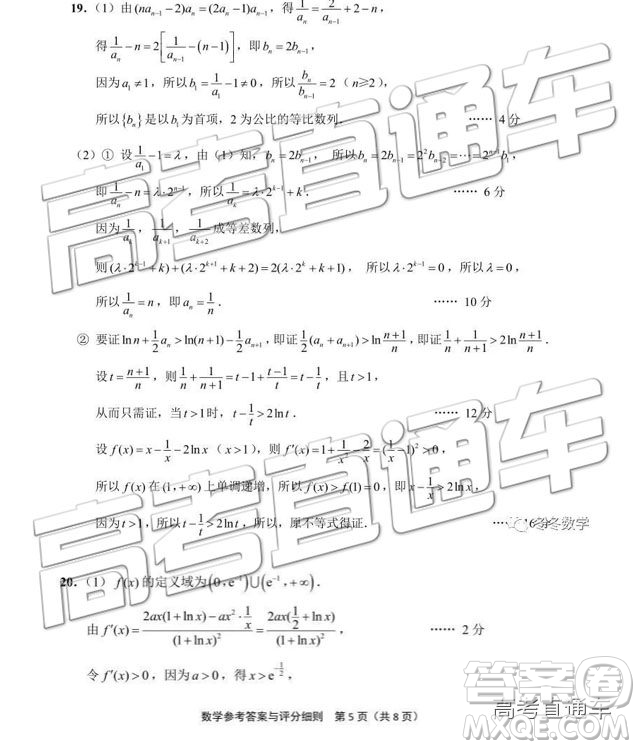 19.（1）由(na_{n-1}-2)a_n=(2a_n-1)a_{n-1}，得1/a_n=2/a_{n-1}+2-n，
得1/a_n-n=2[1/a_{n-1}-(n-1)]，即b_n=2b_{n-1}，
因为a_1≠1，所以b_1=1/a_1-1≠0，所以b_n/b_{n-1}=2（n≥2），
所以{b_n}是以b_1为首项，2为公比的等比数列． …… 4分
（2）① 设1/a_1-1=λ，由（1）知，b_n=2b_{n-1}，所以b_n=2b_{n-1}=2^2b_{n-2}=⋯=2^{n-1}b_1，
即1/a_n-n=λ·2^{n-1}，所以1/a_k=λ·2^{k-1}+k． …… 6分
因为1/a_k，1/a_{k+1}，1/a_{k+2}成等差数列，
则(λ·2^{k-1}+k)+(λ·2^{k+1}+k+2)=2(λ·2^k+k+1)，所以λ·2^{k-1}=0，所以λ=0，
所以1/a_n=n，即a_n=1/n． …… 10分
② 要证ln n+1/2a_n>ln(n+1)-1/2a_{n+1}，即证1/2(a_n+a_{n+1})>ln (n+1)/n，即证1/n+1/(n+1)>2ln (n+1)/n．
设t=(n+1)/n，则1/n+1/(n+1)=t-1+(t-1)/t=t-1/t，且t>1，
从而只需证，当t>1时，t-1/t>2ln t． …… 12分
设f(x)=x-1/x-2ln x（x>1），则f′(x)=1+1/x^2-2/x=(1/x-1)^2>0，
所以f(x)在(1,+∞)上单调递增，所以f(x)>f(1)=0，即x-1/x>2ln x，
因为t>1，所以t-1/t>2ln t，所以，原不等式得证． …… 16分
20.（1）f(x)的定义域为(0,e^{-1})∪(e^{-1},+∞)．
由f′(x)=(2ax(1+ln x)-ax^2·1/x)/(1+ln x)^2=2ax(1/2+ln x)/(1+ln x)^2， …… 2分
令f′(x)>0，因为a>0，得x>e^{-1/2}，
数学参考答案与评分细则 第5页（共8页）
高考直通车
高考直通车
高考直通车
冬数学
答案圈
MXQE.COM